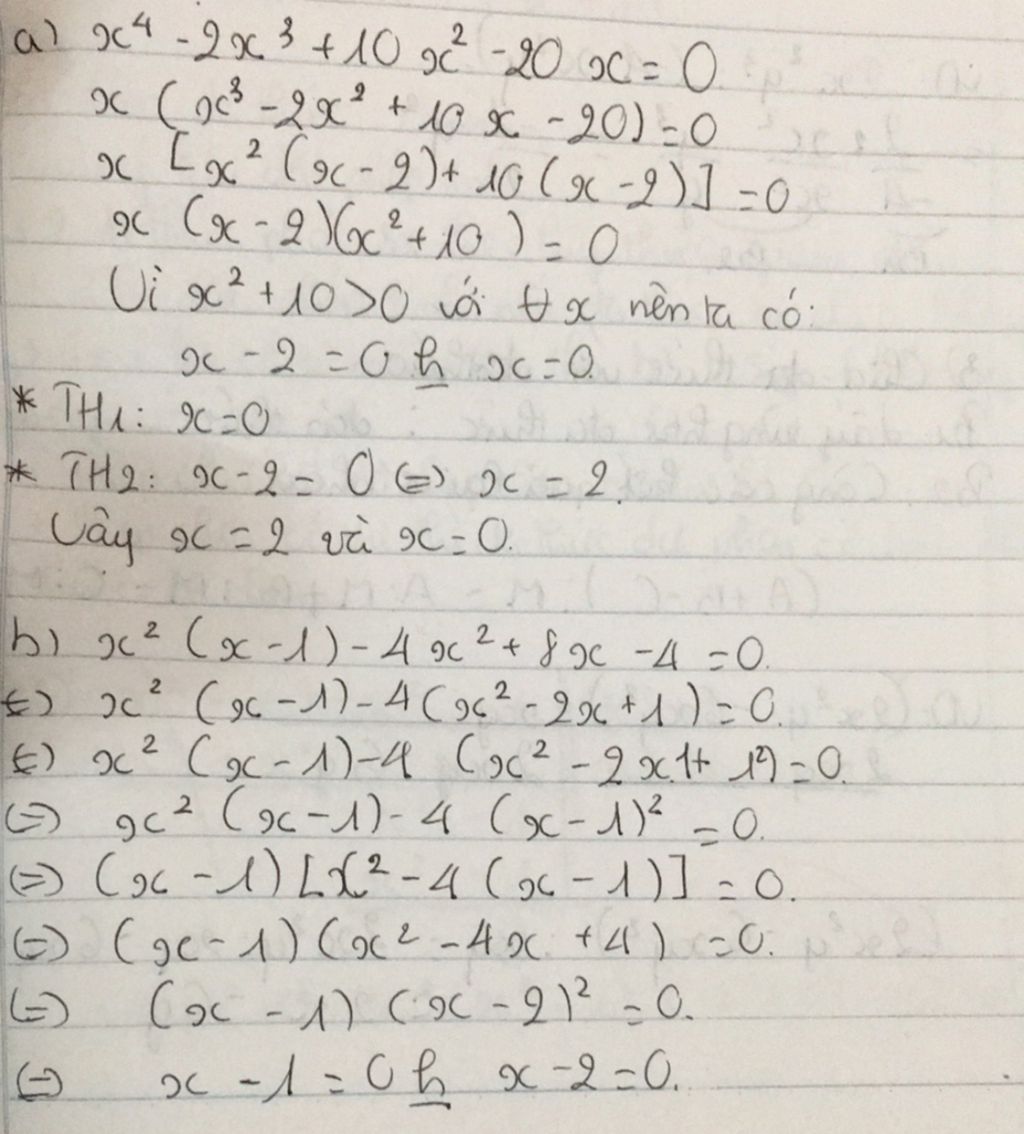 a) x⁴ - 2x³ + 10x² - 20x = 0
x (x³ - 2x² + 10x - 20) = 0
x [x² (x - 2) + 10 (x - 2)] = 0
x (x - 2)(x² + 10) = 0
Vì x² + 10 > 0 với ∀ x nên ta có:
x - 2 = 0 h x = 0.
* TH1: x = 0
* TH2: x - 2 = 0 (=) x = 2.
Vây x = 2 và x = 0.
b) x² (x - 1) - 4x² + 8x - 4 = 0.
(=) x² (x - 1) - 4 (x² - 2x + 1) = 0.
(=) x² (x - 1) - 4 (x² - 2x1 + 1²) = 0.
(=) x² (x - 1) - 4 (x - 1)² = 0.
(=) (x - 1) [x² - 4 (x - 1)] = 0.
(=) (x - 1) (x² - 4x + 4) = 0.
(=) (x - 1) (x - 2)² = 0.
(=) x - 1 = 0 h x - 2 = 0.